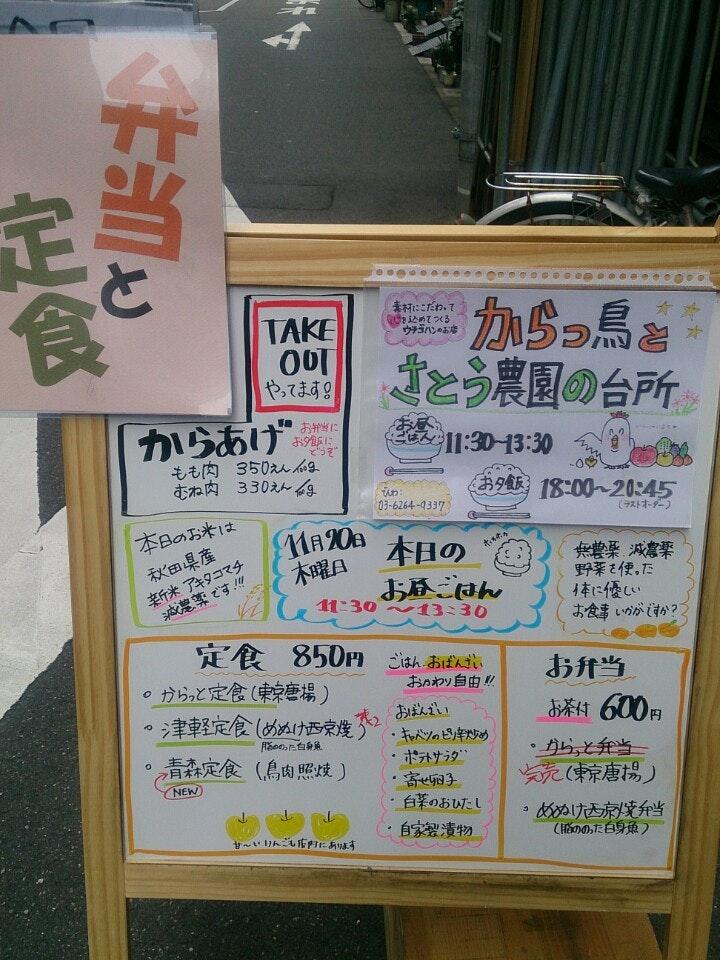 弁当と
定食
TAKE
OUT
やってます!
からあげ
お弁当に
お夕飯に
どうぞ
もも肉 350えん/100g
むね肉 330えん/100g
素材にこだわって
心を込めてつくる
ウチゴハンのお店
からっ鳥と
さとう農園の台所
お昼
ごはん
11:30~13:30
お夕飯
18:00~20:45
(ラストオーダー)
でんわ:
03-6264-9337
本日のお米は
秋田県産
新米 アキタコマチ
減農薬です!!!
11月20日
木曜日
本日の
お昼ごはん
11:30~13:30
ホカホカ
無農薬 減農薬
野菜を使った
体に優しい
お食事 いかがですか?
定食 850円
・からっと定食(東京唐揚)
・津軽定食(めぬけ西京焼)残2
脂ののった白身魚
・青森定食(鳥肉照焼)
NEW
甘~いりんごも店内にあります
ごはん おばんざい
おかわり自由!!
おばんざい
・キャベツのピリ辛炒め
・ポテトサラダ
・寄せ卵子
・白菜のおひたし
・自家製漬物
お弁当
お茶付 600円
・からっと弁当
完売(東京唐揚)
・めぬけ西京焼弁当
(脂ののった白身魚)